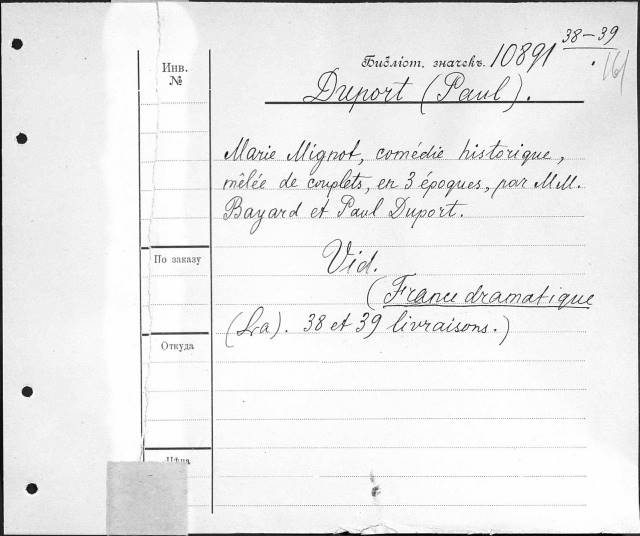 38–39
Инв.
№
Библіот. значекъ. 10891
Duport (Paul).
Marie Mignot, comédie historique,
mêlée de couplets, en 3 époques, par MM.
Bayard et Paul Duport.
По заказу
Vid.
(France dramatique
(La). 38 et 39 livraisons.)
Откуда
Цѣна